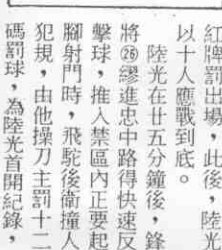 紅牌罰出場，此後，陸光
以十人應戰到底。
陸光在廿五分鐘後，鋒
將㉖繆進忠中路得快速反
擊球，推入禁區內正要起
腳射門時，飛駝後衛撞人
犯規，由他操刀主罰十二
碼罰球，為陸光首開紀錄，